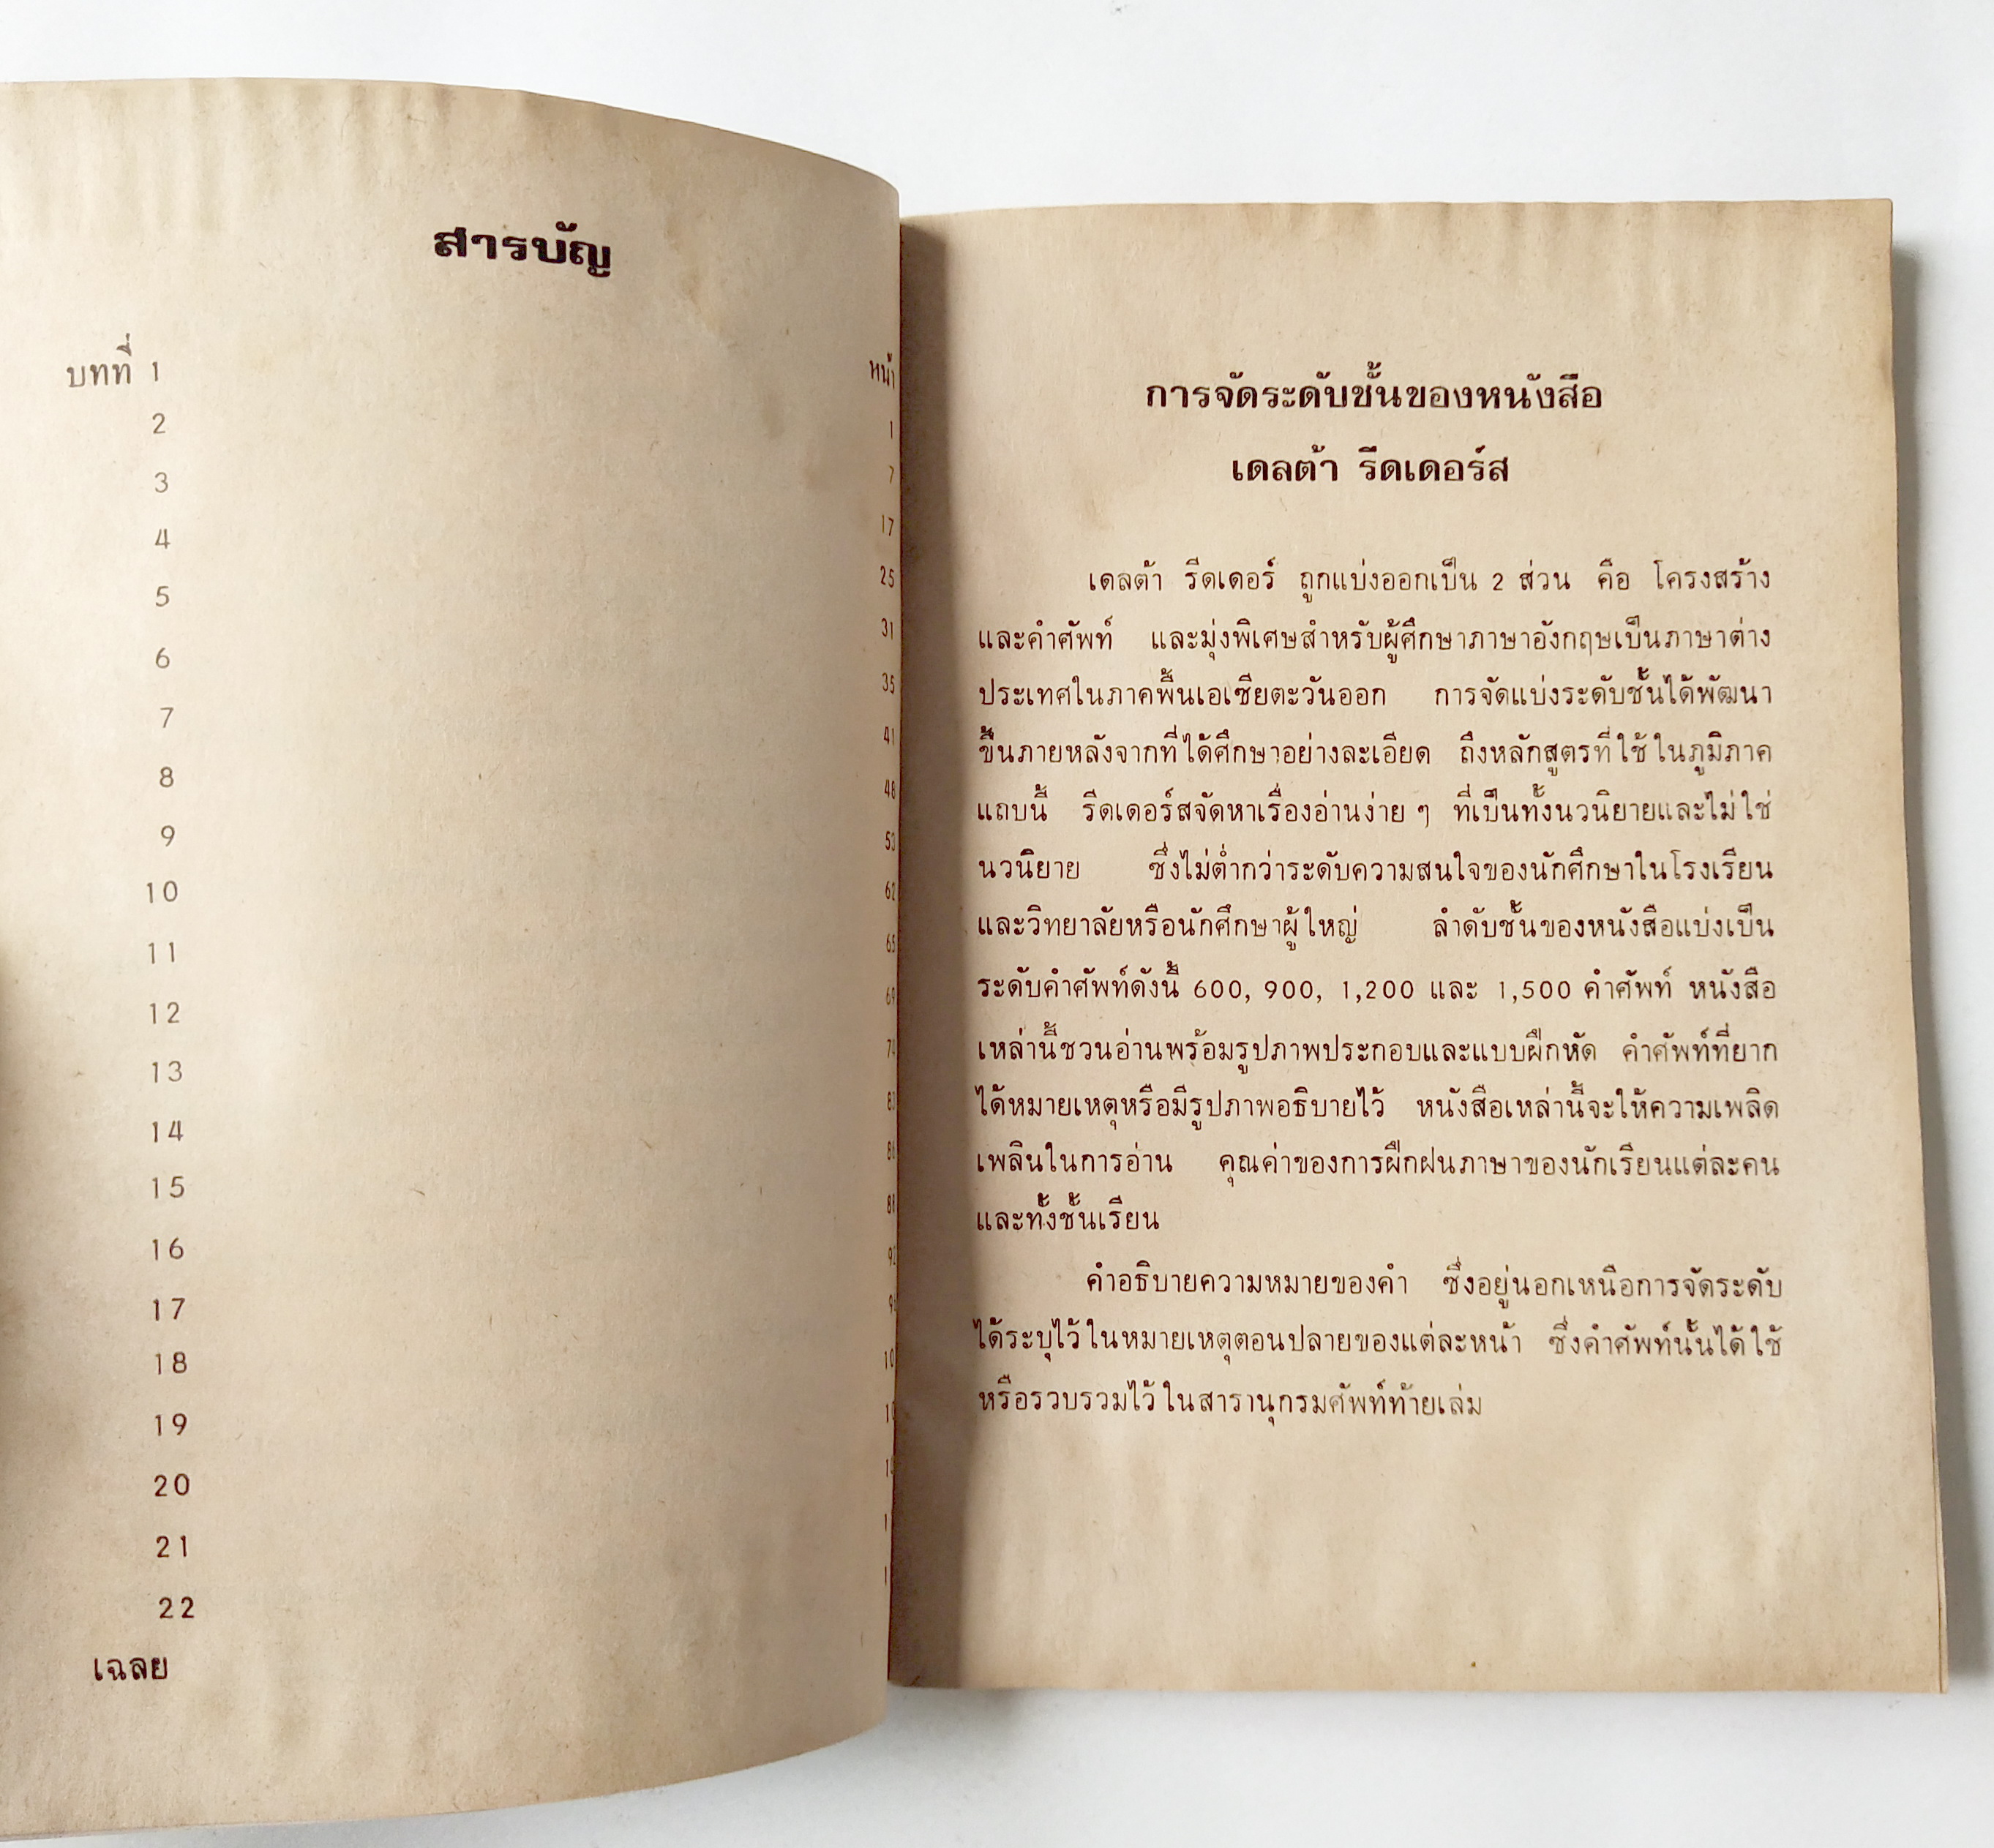 สารบัญ
บทที่ 1
หน้า
2
1
3
7
4
17
5
25
6
31
7
35
8
41
9
48
10
53
11
62
12
65
13
69
14
74
15
83
16
86
17
88
18
92
19
20
21
22
เฉลย
การจัดระดับชั้นของหนังสือ
เดลต้า รีดเดอร์ส
เดลต้า รีดเดอร์ ถูกแบ่งออกเป็น 2 ส่วน คือ โครงสร้าง
และคำศัพท์ และมุ่งพิเศษสำหรับผู้ศึกษาภาษาอังกฤษเป็นภาษาต่าง
ประเทศในภาคพื้นเอเซียตะวันออก การจัดแบ่งระดับชั้นได้พัฒนา
ขึ้นภายหลังจากที่ได้ศึกษาอย่างละเอียด ถึงหลักสูตรที่ใช้ในภูมิภาค
แถบนี้ รีดเดอร์สจัดหาเรื่องอ่านง่าย ๆ ที่เป็นทั้งนวนิยายและไม่ใช่
นวนิยาย ซึ่งไม่ต่ำกว่าระดับความสนใจของนักศึกษาในโรงเรียน
และวิทยาลัยหรือนักศึกษาผู้ใหญ่ ลำดับชั้นของหนังสือแบ่งเป็น
ระดับคำศัพท์ดังนี้ 600, 900, 1,200 และ 1,500 คำศัพท์ หนังสือ
เหล่านี้ชวนอ่านพร้อมรูปภาพประกอบและแบบฝึกหัด คำศัพท์ที่ยาก
ได้หมายเหตุหรือมีรูปภาพอธิบายไว้ หนังสือเหล่านี้จะให้ความเพลิด
เพลินในการอ่าน คุณค่าของการฝึกฝนภาษาของนักเรียนแต่ละคน
และทั้งชั้นเรียน
คำอธิบายความหมายของคำ ซึ่งอยู่นอกเหนือการจัดระดับ
ได้ระบุไว้ในหมายเหตุตอนปลายของแต่ละหน้า ซึ่งคำศัพท์นั้นได้ใช้
หรือรวบรวมไว้ในสารานุกรมศัพท์ท้ายเล่ม